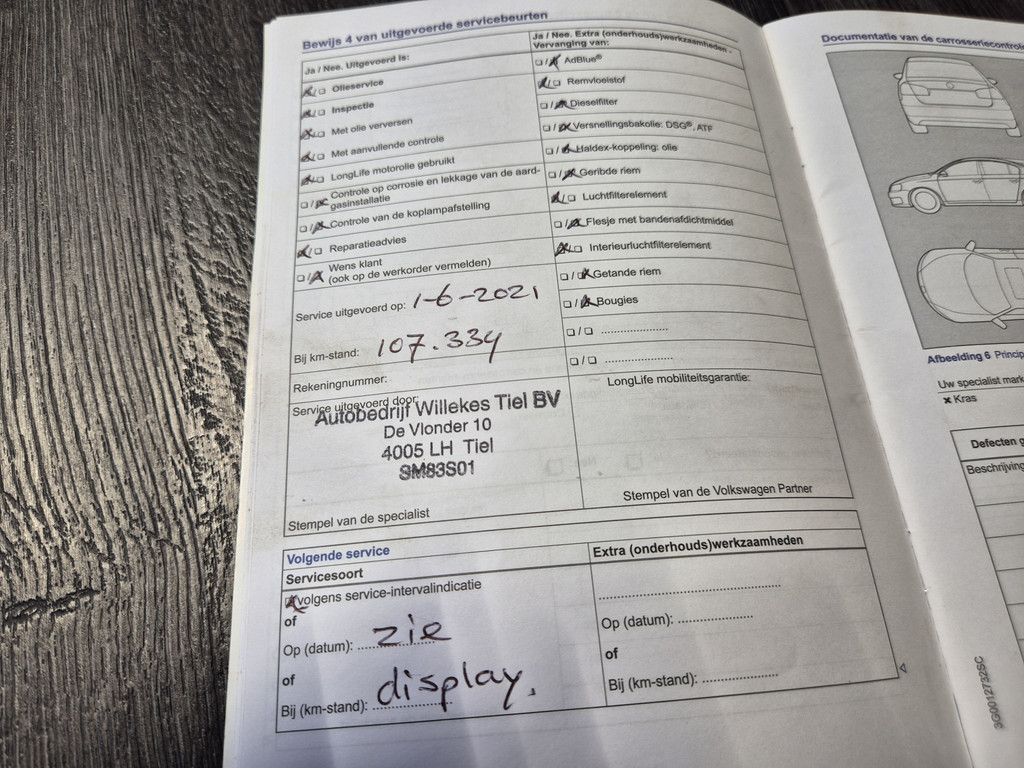 Bewijs 4 van uitgevoerde servicebeurten
Ja / Nee. Uitgevoerd is:
Olieservice
Inspectie
Met olie verversen
Met aanvullende controle
LongLife motorolie gebruikt
Controle op corrosie en lekkage van de aard-
gasinstallatie
Controle van de koplampafstelling
Reparatieadvies
Wens klant
(ook op de werkorder vermelden)
Service uitgevoerd op: 1-6-2021
Bij km-stand: 107.334
Rekeningnummer:
Service uitgevoerd door:
Autobedrijf Willekes Tiel BV
De Vlonder 10
4005 LH Tiel
SM83S01
Stempel van de specialist
Ja / Nee. Extra (onderhouds)werkzaamheden -
Vervanging van:
AdBlue®
Remvloeistof
Dieselfilter
Versnellingsbakolie: DSG®, ATF
Haldex-koppeling: olie
Geribde riem
Luchtfilterelement
Flesje met bandenafdichtmiddel
Interieurluchtfilterelement
Getande riem
Bougies
LongLife mobiliteitsgarantie:
Stempel van de Volkswagen Partner
Volgende service
Servicesoort
volgens service-intervalindicatie
of
Op (datum): zie
of
Bij (km-stand): display.
Extra (onderhouds)werkzaamheden
Op (datum):
of
Bij (km-stand):
Documentatie van de carrosseriecontrole
Afbeelding 6 Princip
Uw specialist mark
× Kras
Defecten g
Beschrijving
3G0012732SC